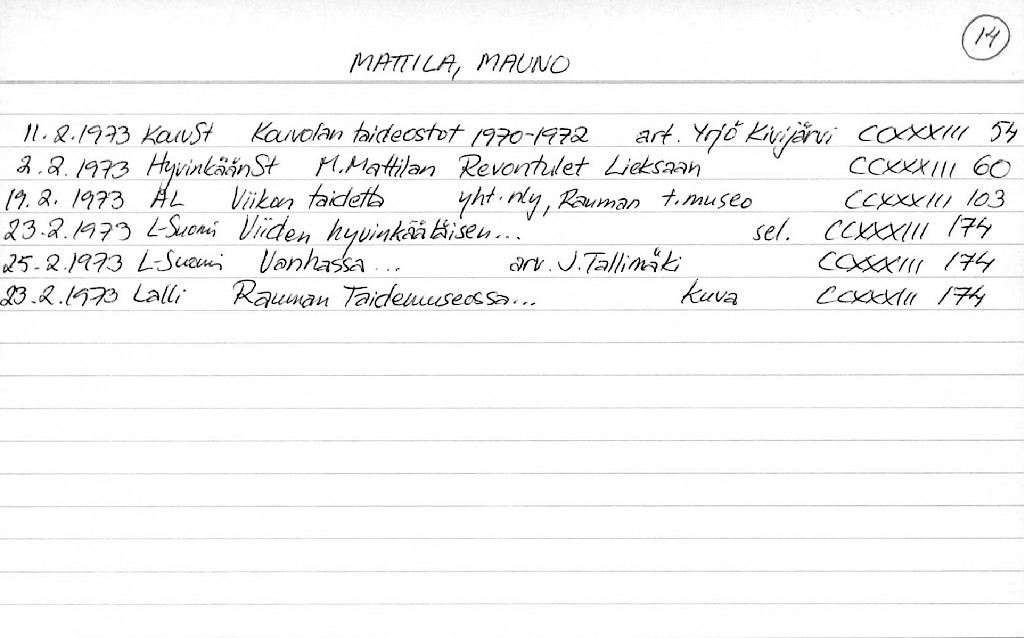 14
MATTILA, MAUNO
11.2.1973 KouvSt Kouvolan taideostot 1970-1972 art. Yrjö Kivijärvi CCXXXIII 54
2.2.1973 HyvinkäänSt M.Mattilan Revontulet Lieksaan CCXXXIII 60
19.2.1973 AL Viikon taidetta yht.nly, Rauman t.museo CCXXXIII 103
23.2.1973 L-Suomi Viiden hyvinkääläisen... sel. CCXXXIII 174
25.2.1973 L-Suomi Vanhassa... arv. J.Tallimäki CCXXXIII 174
23.2.1973 Lalli Rauman Taidemuseossa... kuva CCXXXIII 174